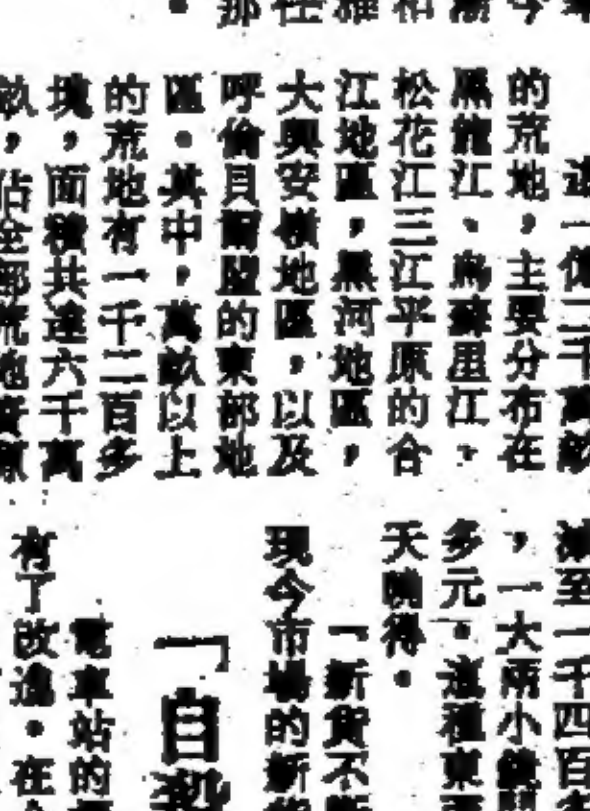 這一億二千萬畝
的荒地，主要分布在
黑龍江、烏蘇里江、
松花江三江平原的合
江地區，黑河地區，
大興安嶺地區，以及
呼倫貝爾盟的東部地
區。其中，萬畝以上
的荒地有一千二百多
塊，面積共達六千萬
畝，佔全部荒地
至一千四百
，一大兩小
多元。這種東
天曉得。
「新貨不
現今市場的新
「自
電車站的
有了改進。在